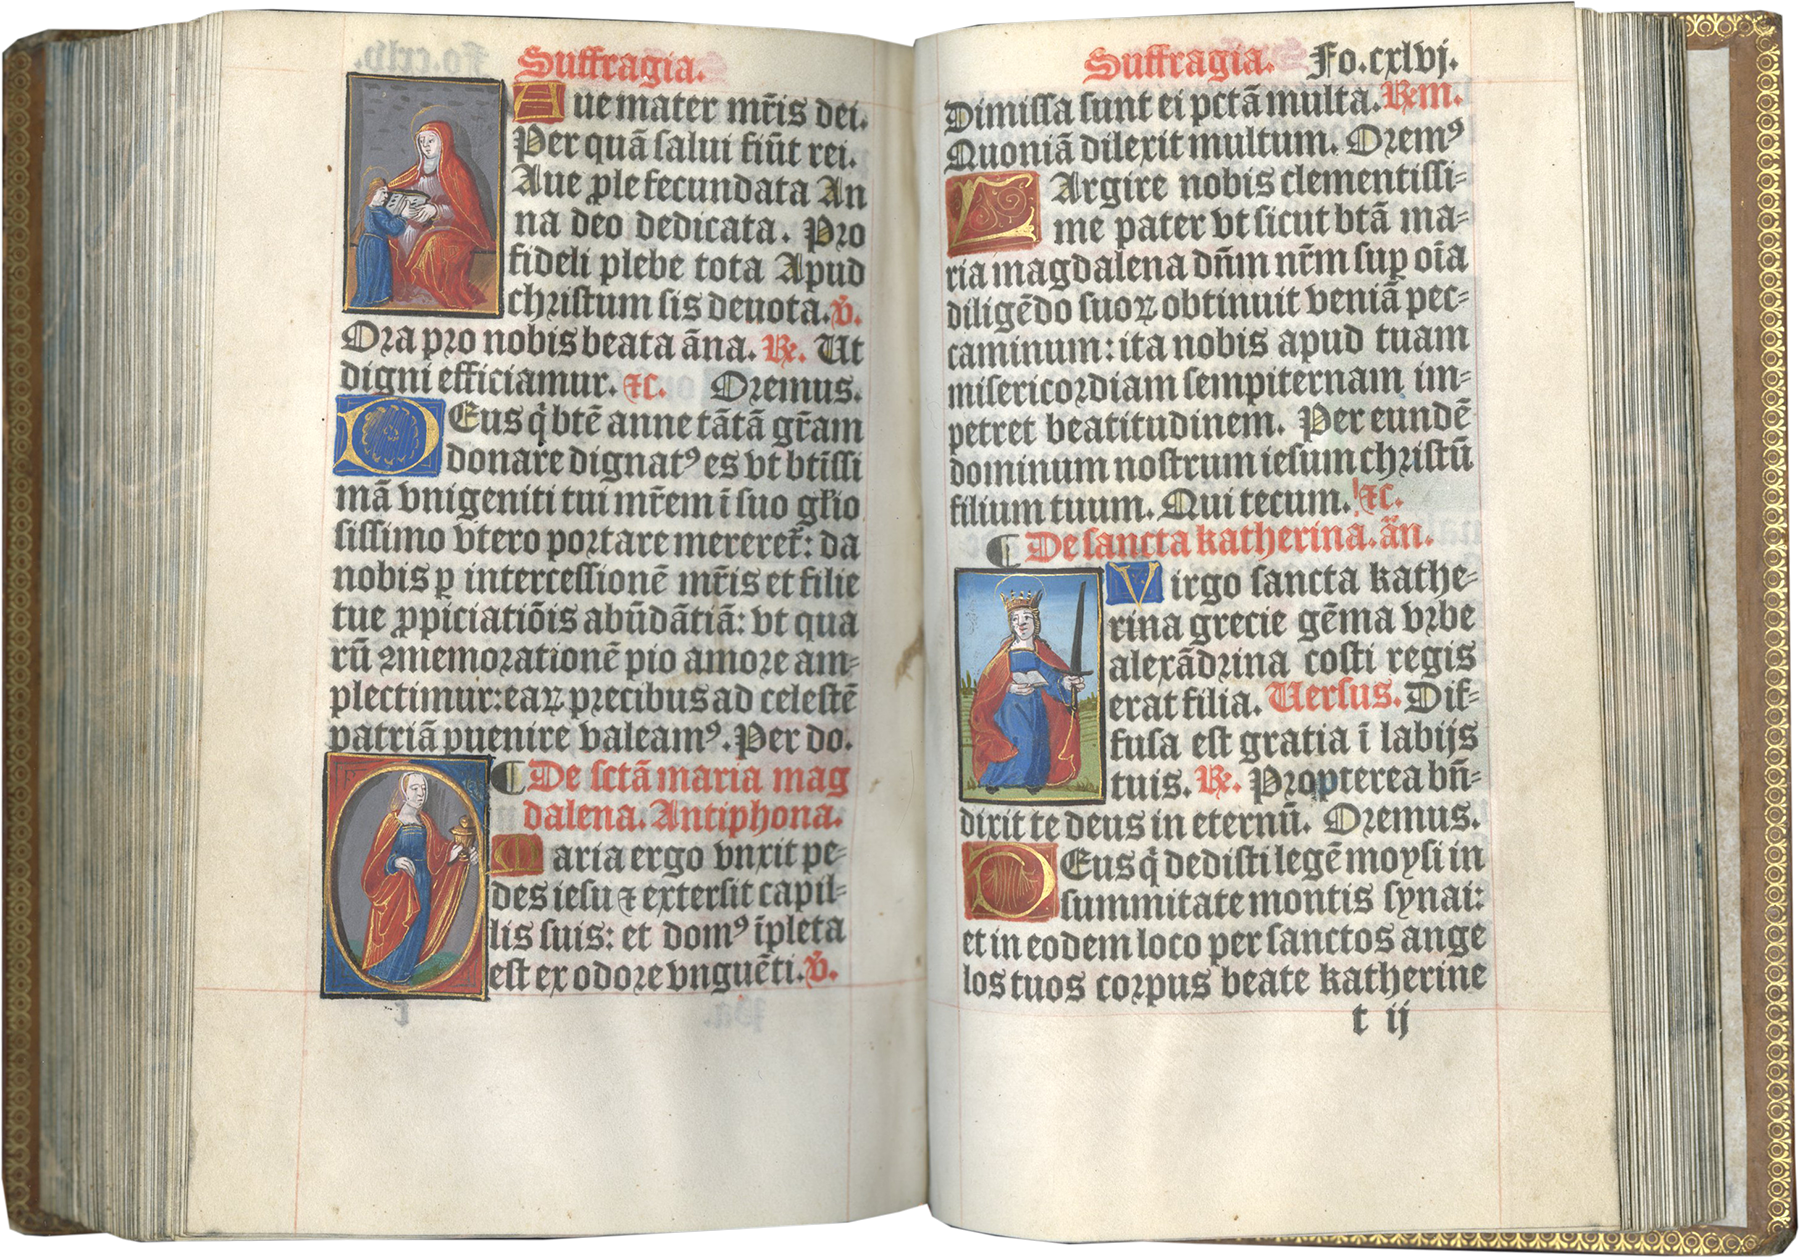 Suffragia.
Aue mater mr̄is dei.
Per quā salui fiūt rei.
Aue ꝓle fecundata An
na deo dedicata. Pro
fideli plebe tota Apud
christum sis deuota. v̄.
Ora pro nobis beata āna. ℞. Ut
digni efficiamur. ⁊c. Oremus.
DEus q̄ btē anne tātā gr̄am
donare dignatꝰ es vt btīssi
mā vnigeniti tui mr̄em ī suo gl̄io
sissimo vtero portare mereret̄: da
nobis ꝑ intercessionē mr̄is et filie
tue ꝓpiciatiōis abūdātiā: vt qua
rū ꝯmemorationē pio amore am⸗
plectimur: eaꝝ precibus ad celestē
patriā ꝑuenire valeamꝰ. Per do.
¶ De sctā maria mag
dalena. Antiphona.
Maria ergo vnxit pe⸗
des iesu ⁊ extersit capil⸗
lis suis: et domꝰ īpleta
est ex odore vnguēti. v̄.
Suffragia. Fo.cxlvj.
Dimissa sunt ei pctā multa. ℞em.
Quoniā dilexit multum. Oremꝰ
LArgire nobis clementissi⸗
me pater vt sicut btā ma⸗
ria magdalena dn̄m nr̄m suꝑ oīa
diligēdo suoꝝ obtinuit veniā pec⸗
caminum: ita nobis apud tuam
misericordiam sempiternam im⸗
petret beatitudinem. Per eundē
dominum nostrum iesum christū
filium tuum. Qui tecum. ⁊c.
¶ De sancta katherina. ān.
Virgo sancta kathe⸗
rina grecie gēma vrbe
alexādrina costi regis
erat filia. Uersus. Dif⸗
fusa est gratia ī labijs
tuis. ℞. Propterea bn̄⸗
dixit te deus in eternū. Oremus.
DEus q̄ dedisti legē moysi in
summitate montis synai:
et in eodem loco per sanctos ange
los tuos corpus beate katherine
t ij